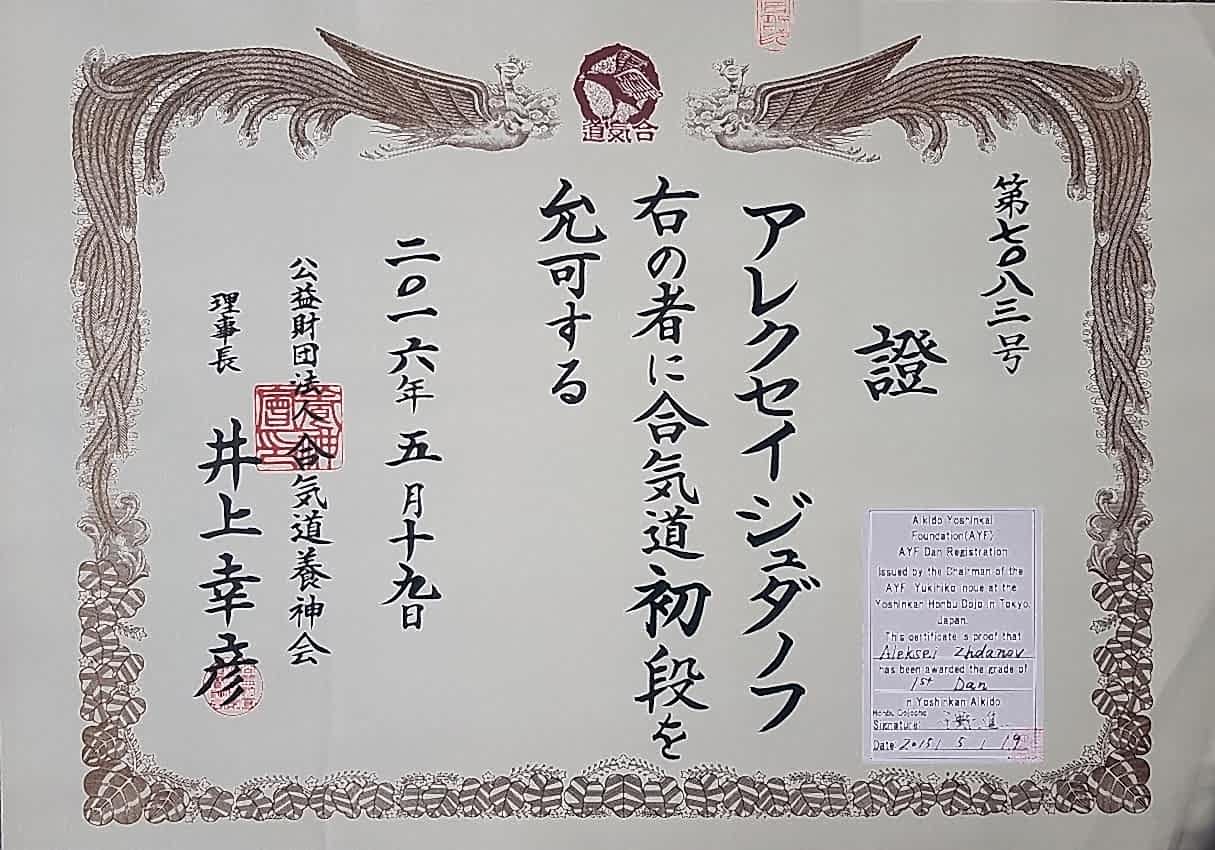 道気合
第七〇八三号
證
アレクセイジュダノフ
右の者に合気道初段を
允可する
二〇一六年五月十九日
公益財団法人合気道養神会
理事長 井上幸彦
Aikido Yoshinkai
Foundation(AYF)
AYF Dan Registration
Issued by the Chairman of the
AYF Yukihiko Inoue at the
Yoshinkan Honbu Dojo in Tokyo,
Japan.
This certificate is proof that
Aleksei Zhdanov
has been awarded the grade of
1st Dan
in Yoshinkan Aikido
Honbu Dojocho
Signature:
Date: 2015 / 5 / 19